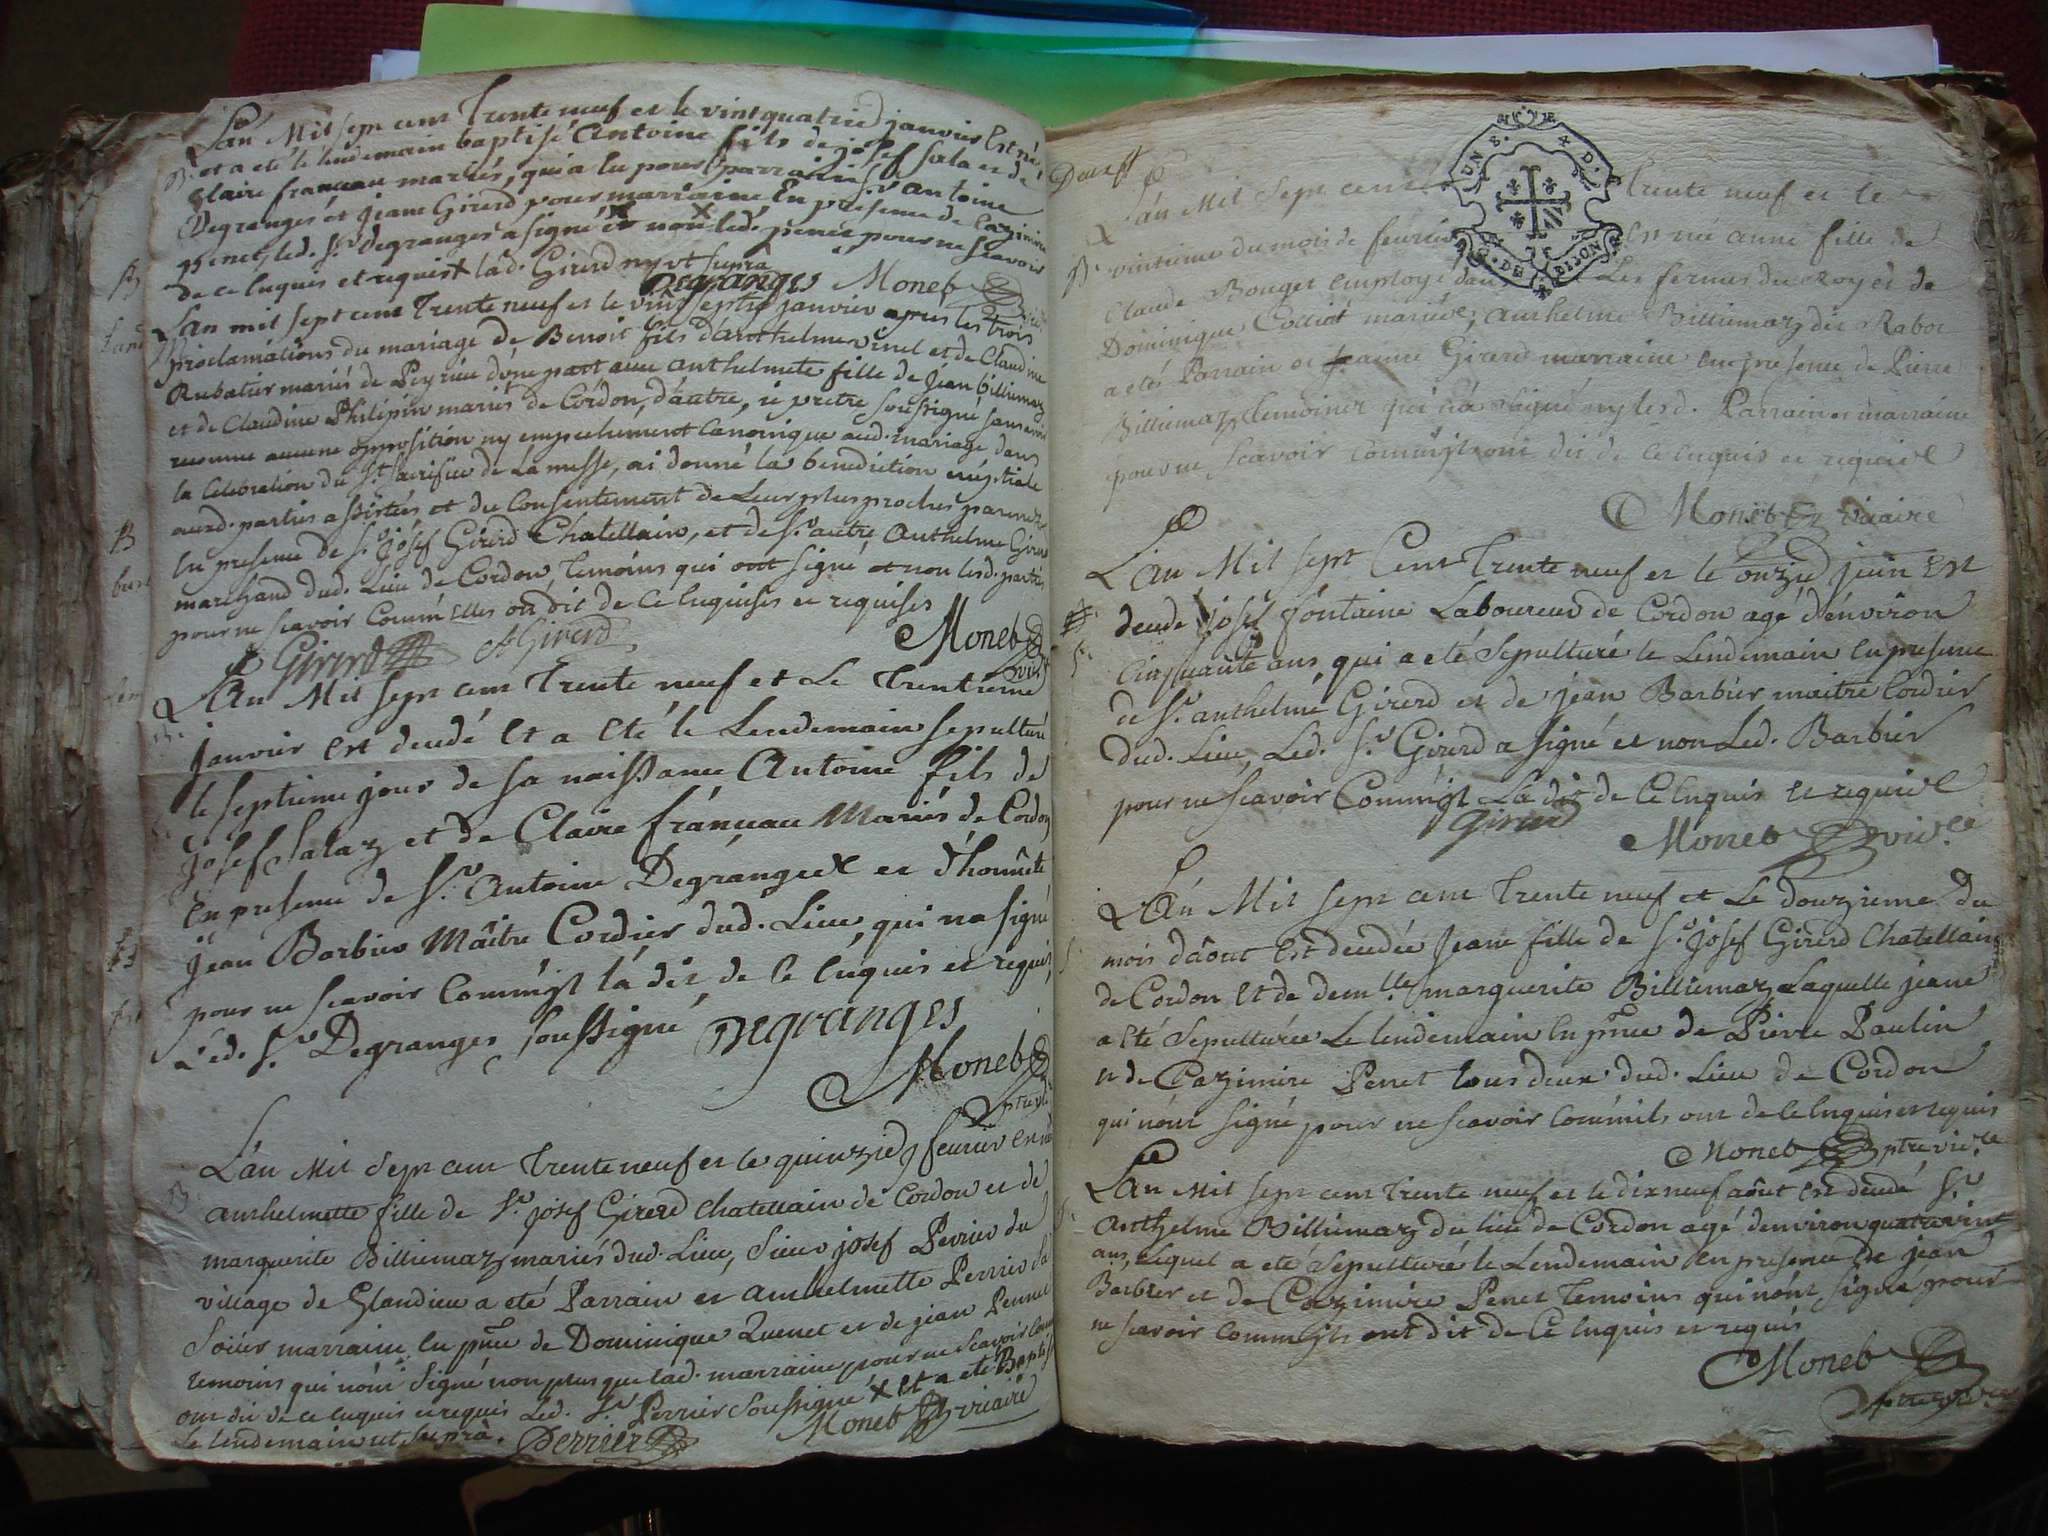 L'an Mil sept cent Trente neuf et le vint quatried janvier Est né
B. et a eté le lendemain baptisé Antoine fils de josef sala et de
Claire franueau mariés, qui a eu pour parrain Sr antoine
Degranges et jeane Girerd pour marraine En presence de Cazimire
penet, led. Sr degranges a signé et non led. penet pour ne scavoir
de ce Enquis et requis lad. Girerd ny ut supra
Degranges Moneb
Lan mil sept cent Trente neuf et le vint septie janvier apres les trois
proclamations du mariage de Benoit fils d'anthelme vinel et de Claudine
Rubatier mariés de Peyrieu d'une part avec anthelmete fille de jean billiemaz
et de Claudine Philipin mariés de Cordon, d'autre, je pretre soussigné sans avoir
reconnu aucune opposition ny empechement Canonique aud. mariage dans
la Celebration du St sacrifice de La messe, ai donné la benediction nuptiale
auxd. parties assistés et du Consentement de Leurs plus proches parents
En presence de Sr josef Girerd Chatellain, et de Sr autre Anthelme Girerd
marchand dud. Lieu de Cordon, Temoins qui ont signé et non lesd. parties
pour ne scavoir Comm'Elles on dit de ce Enquises et requises
Girerd AGirerd Moneb
vic
L'An Mil sept cent Trente neuf et Le Trentieme
janvier est decedé et a Eté le Lendemain sepulturé
le septieme jour de sa naissance Antoine fils de
josef Salaz et de Claire franueau Mariés de Cordon
en presence de Sr Antoine Degranges et d'honnête
jean Barbier Mâitre Cordier dud. Lieu, qui na signé
pour ne scavoir Comm'jl la dit de Ce Enquis et requis,
Led. Sr Degranges soussigné Degranges
Moneb
ptre vic
L'an Mil Sept cent Trente neuf et le quinzied feuvrier est née
B. anthelmette fille de Sr josef Girerd Chatellain de Cordon et de
marguerite Billiemaz mariés dud. Lieu, Sieur josef Perrier du
village de Glandieu a eté Parrain et anthelmette Perrier sa
Soeur marraine En pnce de Dominique Quenet et de jean Pennet
temoins qui n'ont Signé non plus que lad. marraine pour ne scavoir Comm
ont dit de ce Enquis et requis Led. Sr Perrier Soussigné X et a eté Baptisé
Le lendemain ut Supra. Perrier Moneb vicaire
Deux ff
L'an Mil Sept cent Trente neuf et le
B. vintieme du mois de feuvrier Est née anne fille de
Claude Bouget Employé dans Les fermes du Roy et de
Dominique Colliat mariés, Anthelme Billiemaz dit Rabot
a eté Parrain et jeanne Girerd marraine en presence de Pierre
Billiemaz temoins qui n'a signé ny lesd. Parrain et marraine
pour ne scavoir comm'jls ont dit de Ce Enquis et requis
Moneb vicaire
UN S. X D.
G. DE DIJON
L'An Mil sept Cent Trente neuf et le onzied juin Est
decede josef fontaine Laboureur de Cordon agé d'environ
S. Cinquante ans, qui a eté sepulturé le Lendemain En presence
de Sr anthelme Girerd et de jean Barbier maitre Cordier
dud. Lieu, Led. Sr Girerd a signé et non Led. Barbier
pour ne scavoir Comm'jl La dit de Ce Enquis et requis
Girerd Moneb vicre
L'An Mil sept cent Trente neuf et Le douzieme du
mois d'août Est decedée jeane fille de Sr josef Girerd Chatellain
de Cordon et de demlle marguerite Billiemaz Laquelle jeane
a Eté Sepulturée Le lendemain En pnce de Pierre Paulin
et de Cazimire Penet tous deux dud. Lieu de Cordon
qui n'ont signé pour ne scavoir comm'ils ont de Ce Enquis et requis
Moneb ptre vicre
L'an Mil sept cent Trente neuf et le dix neuf août est decedé Sr
Anthelme Billiemaz du lieu de Cordon agé denviron quatrevint
ans, Lequel a eté Sepulturé le Lendemain En presence de jean
Barbier et de Cazimire Penet Temoins qui n'ont signé pour
ne scavoir Comm'jls ont dit de Ce Enquis et requis
Moneb
ptre vicre